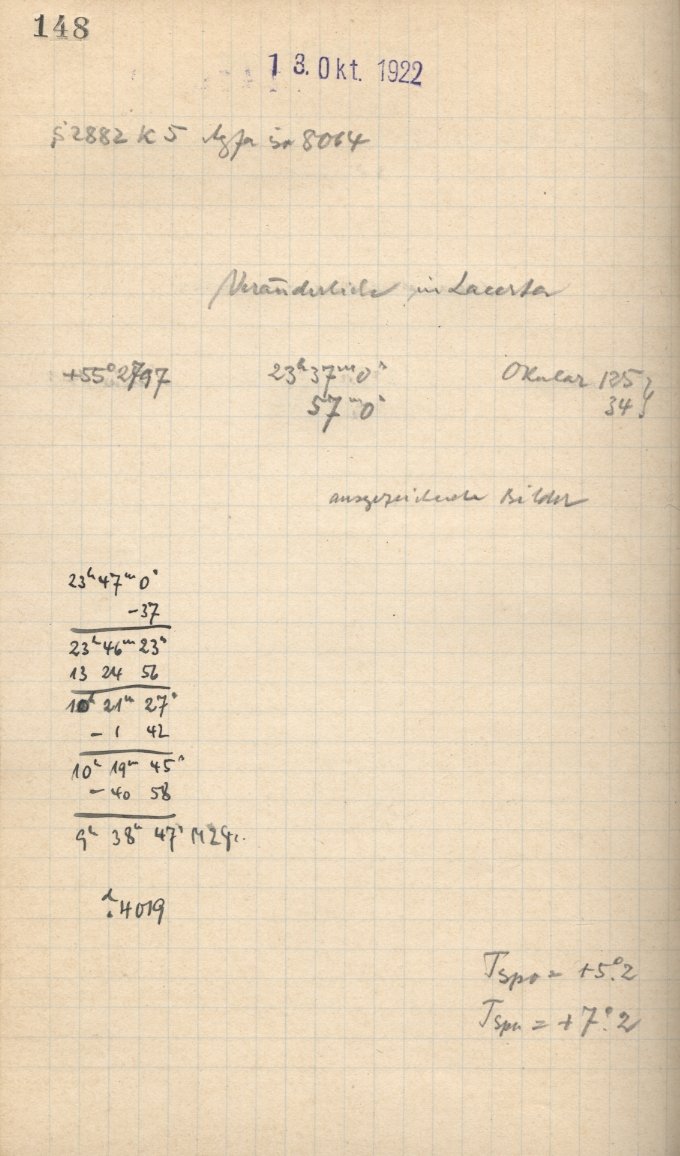 148
13. Okt. 1922
2882 K 5 Agfa iso 8064
Veränderliche in Lacerta
+55° 2797 23ʰ37ᵐ0ˢ Okular 125}
57ᵐ0ˢ 34}
ausgezeichnete Bilder
23ʰ47ᵐ0ˢ
-37
23ʰ46ᵐ23ˢ
13 24 56
10ʰ 21ᵐ 27ˢ
- 1 42
10ʰ 19ᵐ 45ˢ
- 40 58
9ʰ 38ᵐ 47ˢ MZGr.
ᵈ.4019
Tspo = +5°.2
Tspu = +7°.2